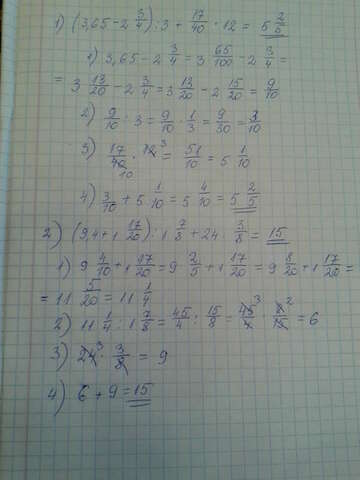 1) (3,65-2 3/4) : 3 + 17/40 · 12 = 5 2/5
1) 3,65 - 2 3/4 = 3 65/100 - 2 3/4 =
= 3 13/20 - 2 3/4 = 3 13/20 - 2 15/20 = 9/10
2) 9/10 : 3 = 9/10 · 1/3 = 9/30 = 3/10
3) 17/40 10 · 12 3 = 51/10 = 5 1/10
4) 3/10 + 5 1/10 = 5 4/10 = 5 2/5
2) (9,4 + 1 17/20) : 1 7/8 + 24 · 3/8 = 15
1) 9 4/10 + 1 17/20 = 9 2/5 + 1 17/20 = 9 8/20 + 1 17/20 =
= 11 5/20 = 11 1/4
2) 11 1/4 : 1 7/8 = 45/4 : 15/8 = 45 3/4 · 8 2/15 = 6
3) 24 3 · 3/8 = 9
4) 6 + 9 = 15